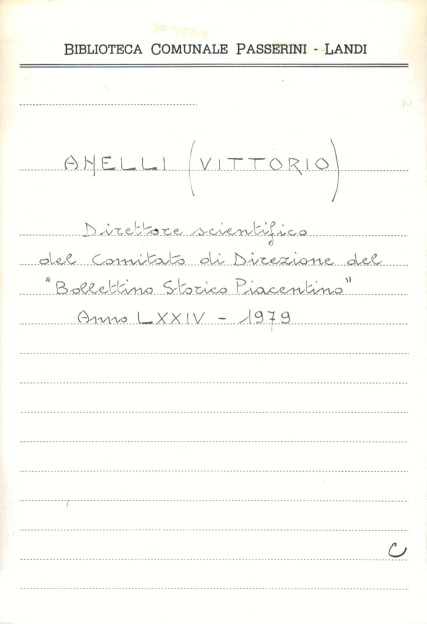 BIBLIOTECA COMUNALE PASSERINI - LANDI
ANELLI (VITTORIO)
Direttore scientifico
del Comitato di Direzione del
"Bollettino Storico Piacentino"
Anno LXXIV - 1979
C